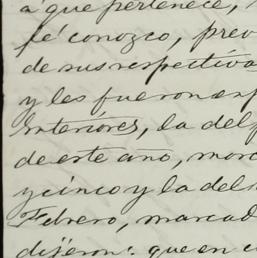 a que pertenece,
fé conozco, prev
de sus respectiva
y les fueron esp
interiores, la del
de este año, marc
y cinco y la del
Febrero, marcad
dijéron: que en c